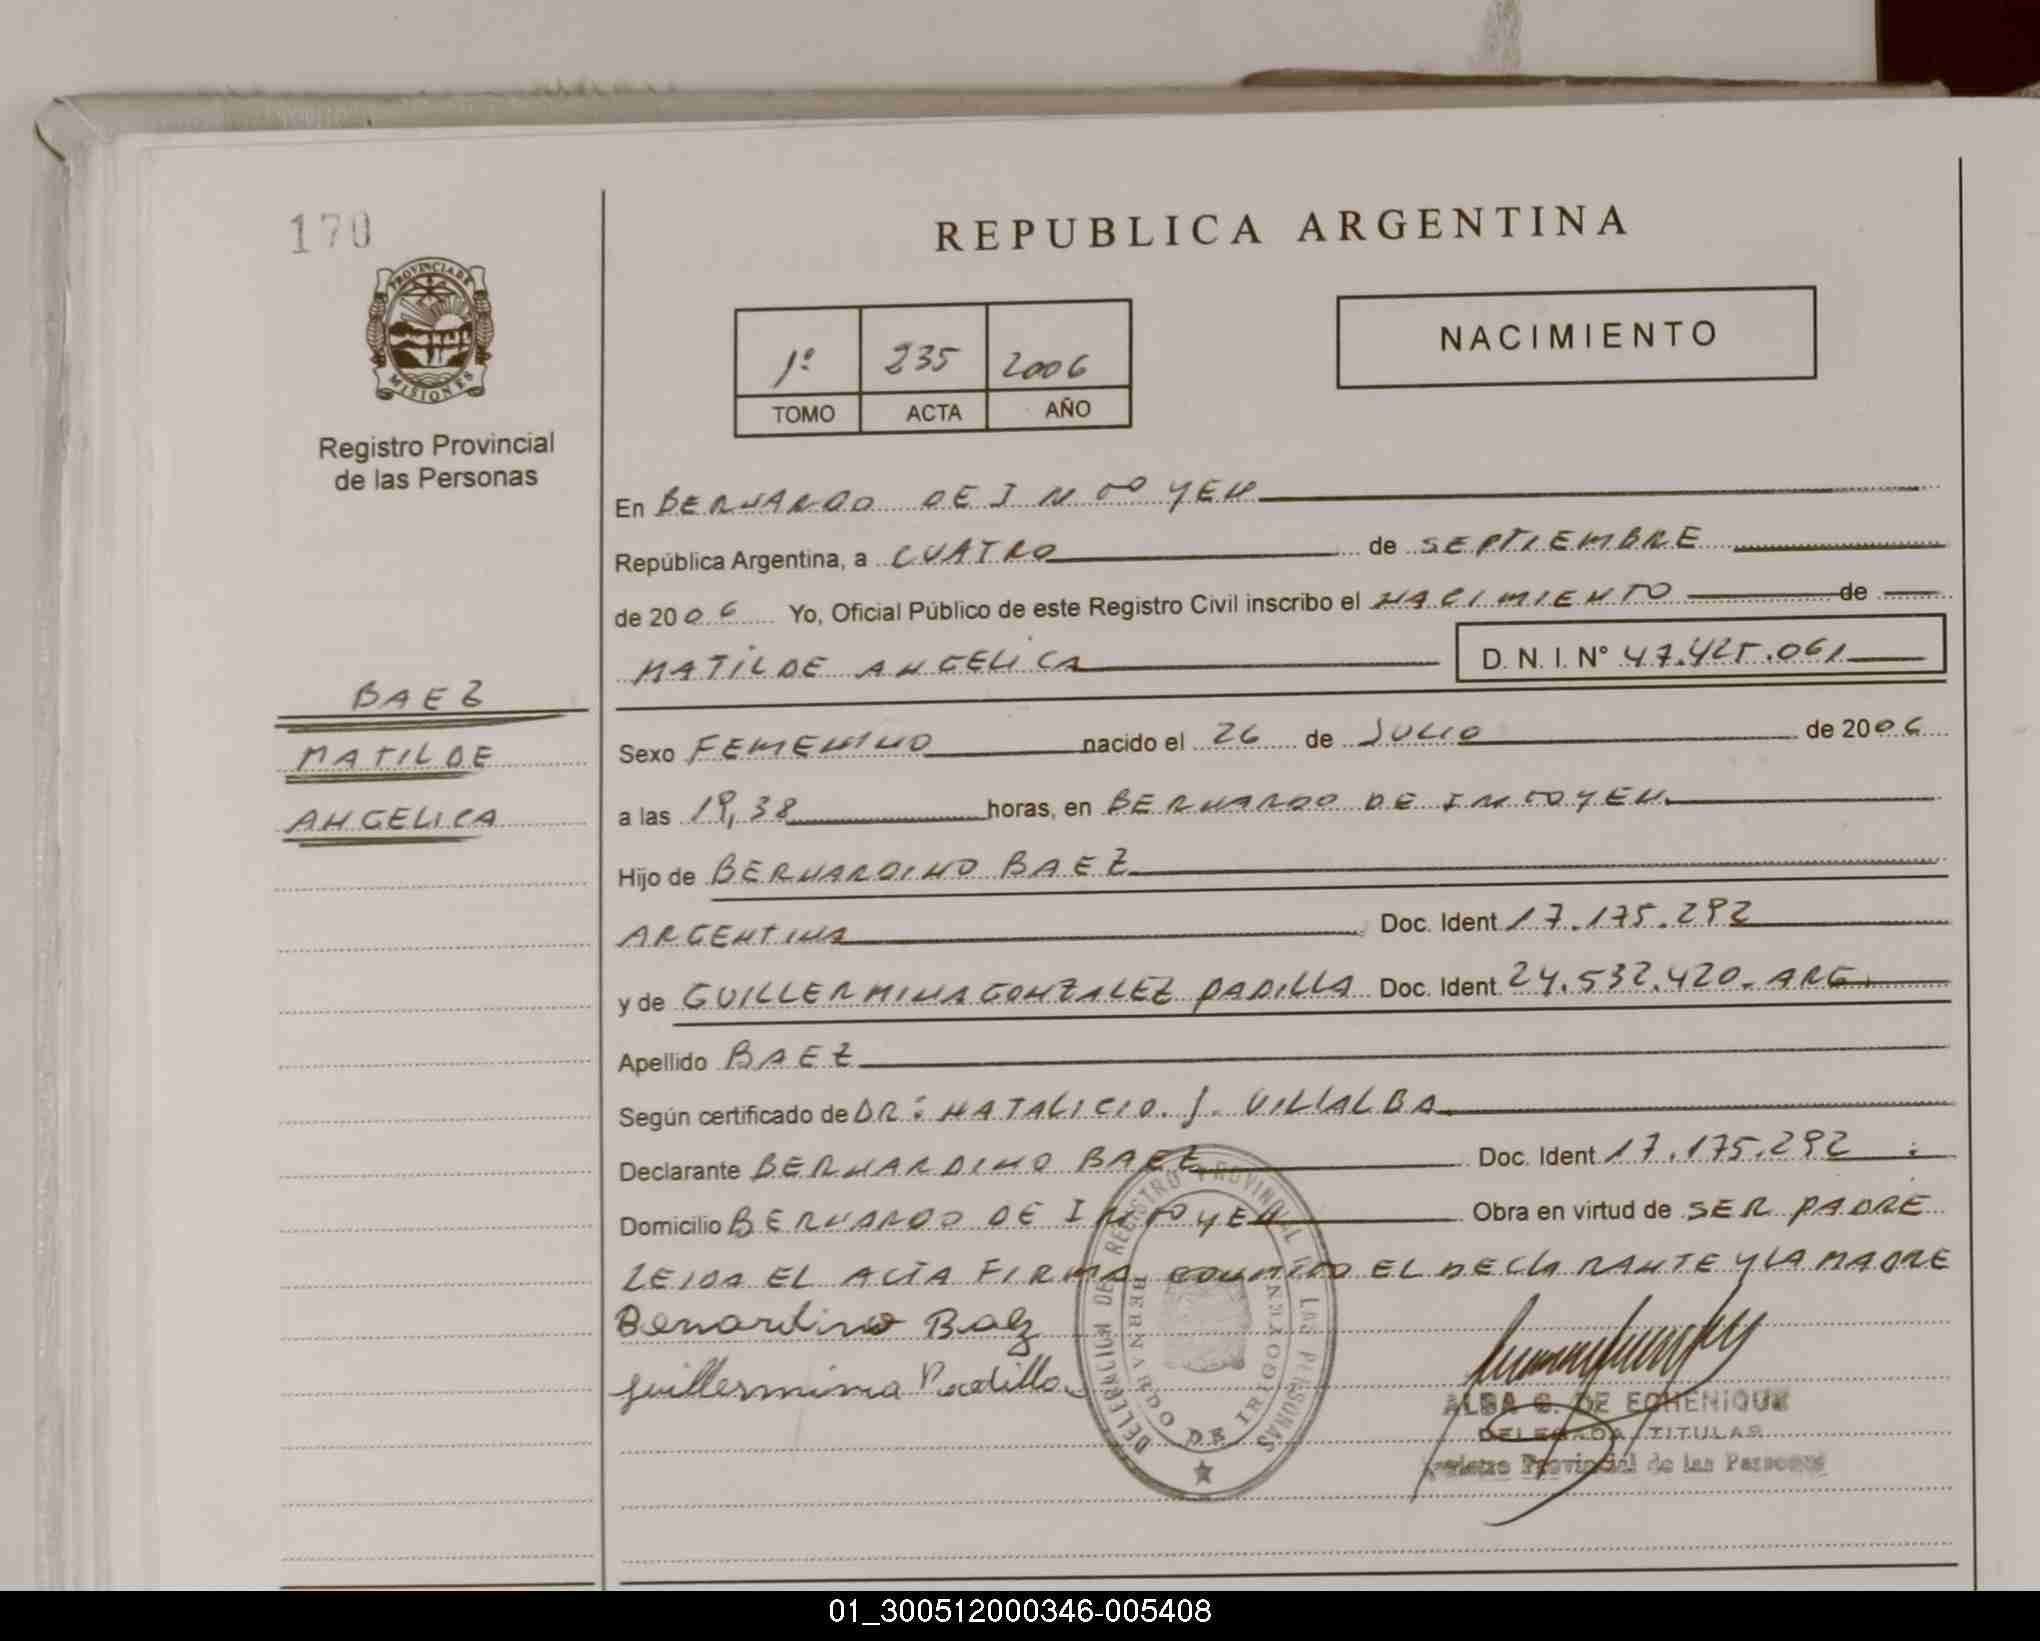 170
PROVINCIA DE
MISIONES
Registro Provincial
de las Personas
REPUBLICA ARGENTINA
1º 235 2006
TOMO ACTA AÑO
NACIMIENTO
En BERNARDO DE IRIGOYEN
República Argentina, a CUATRO de SEPTIEMBRE
de 2006 Yo, Oficial Público de este Registro Civil inscribo el NACIMIENTO de
MATILDE ANGELICA D. N. I. Nº 47.425.061
BAEZ
MATILDE
ANGELICA
Sexo FEMENINO nacido el 26 de JULIO de 2006
a las 19,38 horas, en BERNARDO DE IRIGOYEN.
Hijo de BERNARDINO BAEZ
ARGENTINA Doc. Ident 17.175.292
y de GUILLERMINA GONZALEZ PADILLA Doc. Ident 24.532.420. ARG.
Apellido BAEZ
Según certificado de DR: NATALICIO. J. VILLALBA.
Declarante BERNARDINO BAEZ Doc. Ident 17.175.292
Domicilio BERNARDO DE IRIGOYEN Obra en virtud de SER PADRE
LEIDA EL ACTA FIRMA CONMIGO EL DECLARANTE Y LA MADRE
Bernardino Baez
Guillermina Padilla
DELEGACION DEL REGISTRO PROVINCIAL DE LAS PERSONAS
BERNARDO DE IRIGOYEN
ALBA G. DE ECHENIQUE
DELEGADA TITULAR
Registro Provincial de las Personas
01_300512000346-005408